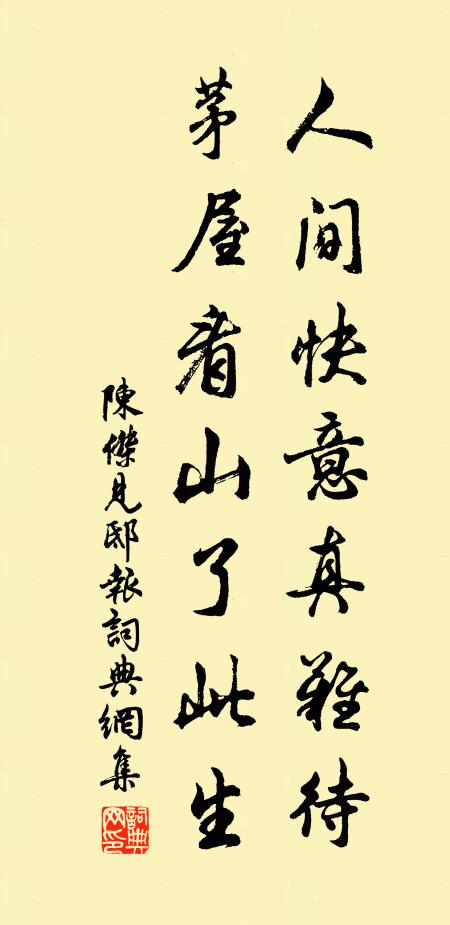 人间快意真難待
茅屋看山了此生
陳傑見邸報詞典網集
詞典网印